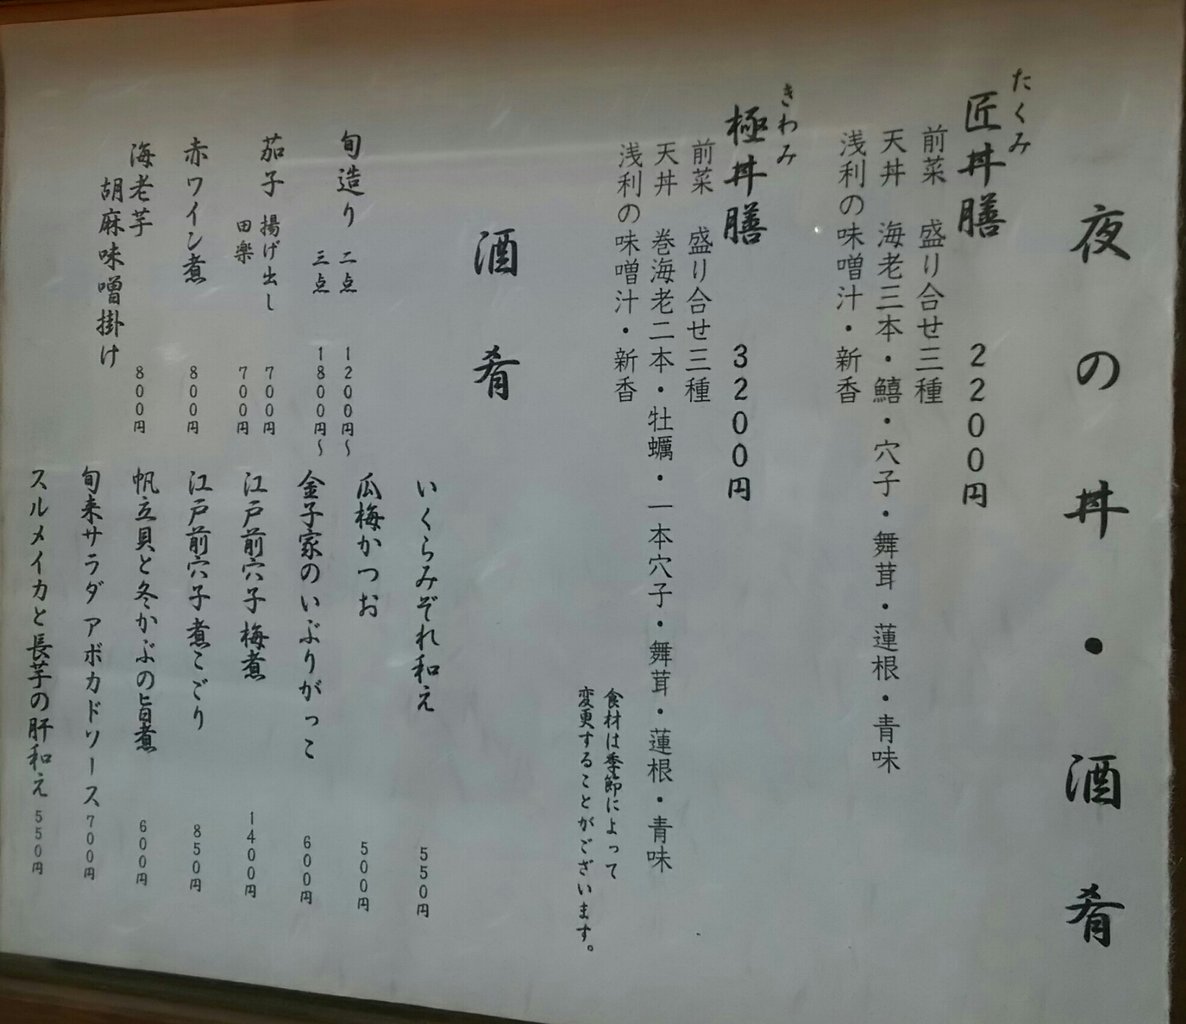 夜の丼・酒肴
たくみ
匠丼膳 2200円
前菜 盛り合せ三種
天丼 海老三本・鱚・穴子・舞茸・蓮根・青味
浅利の味噌汁・新香
きわみ
極丼膳 3200円
前菜 盛り合せ三種
天丼 巻海老二本・牡蠣・一本穴子・舞茸・蓮根・青味
浅利の味噌汁・新香
食材は季節によって
変更することがございます。
酒肴
いくらみぞれ和え 550円
瓜梅かつお 500円
金子家のいぶりがっこ 600円
江戸前穴子 梅煮 1400円
江戸前穴子 煮こごり 850円
帆立貝と冬かぶの旨煮 600円
旬菜サラダ アボカドソース 700円
スルメイカと長芋の肝和え 550円
旬造り 二点 1200円〜
三点 1800円〜
茄子 揚げ出し 700円
田楽 700円
赤ワイン煮 800円
海老芋
胡麻味噌掛け 800円